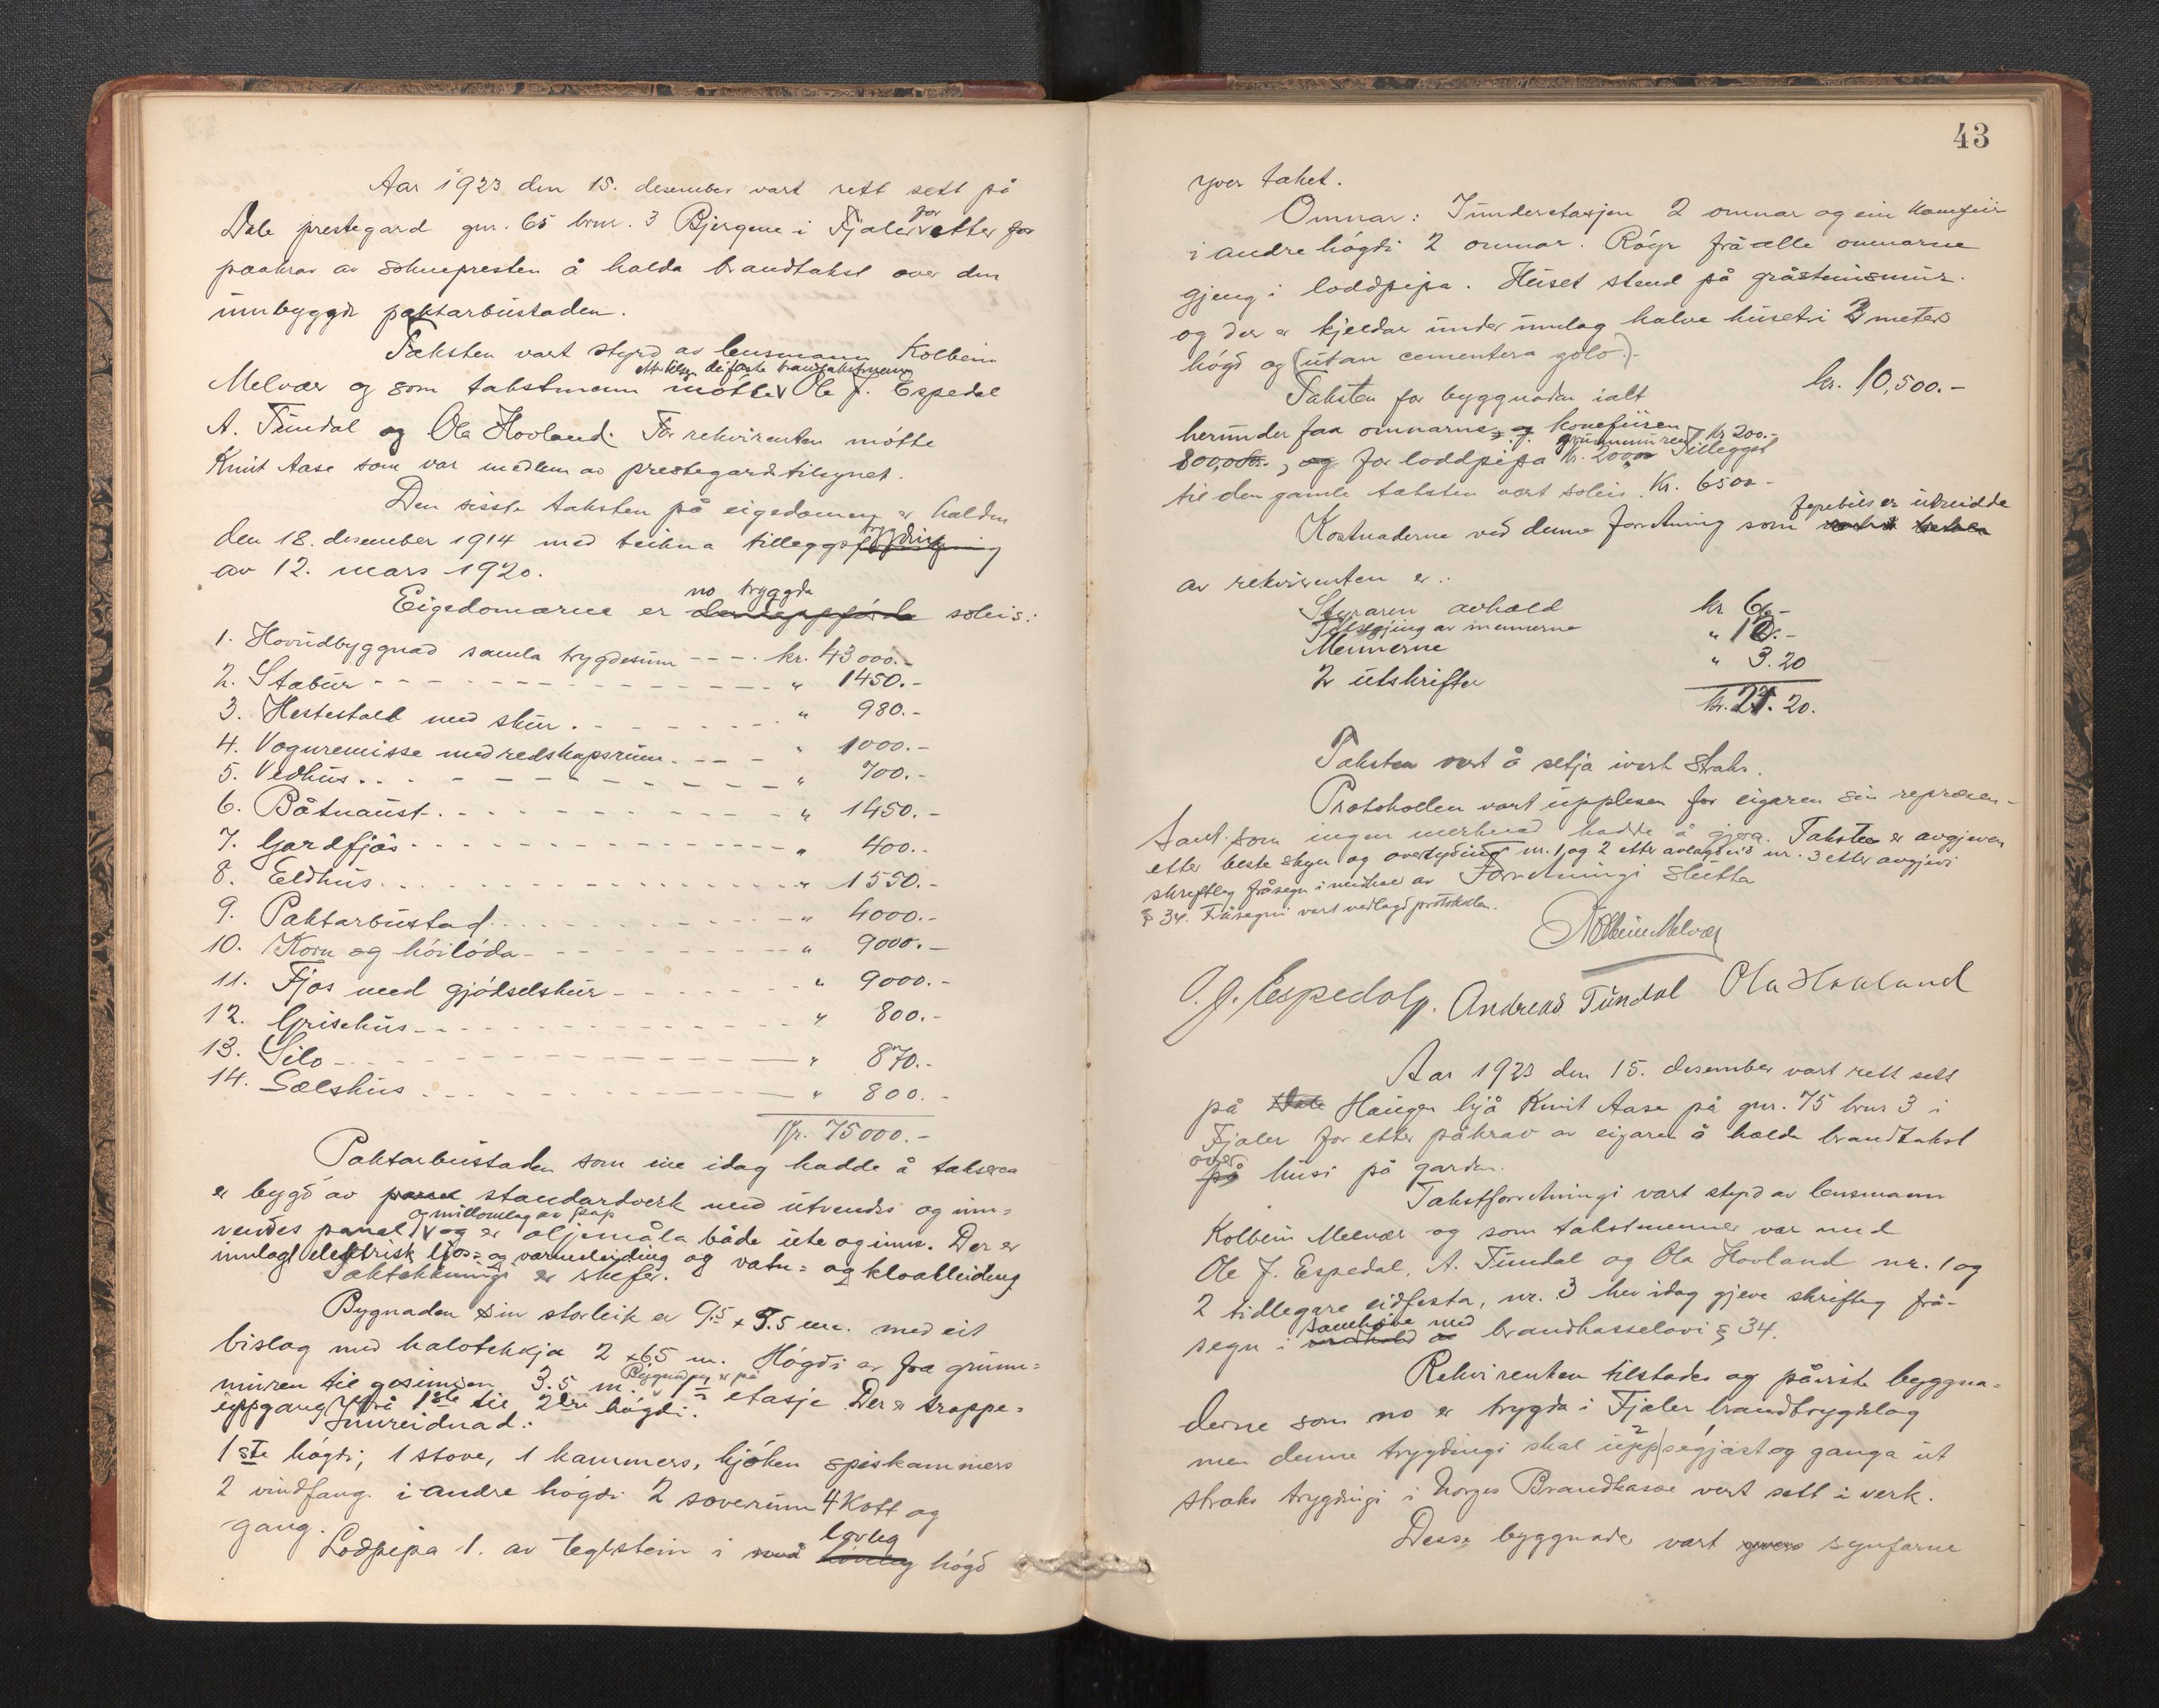 Aar 1923 den 15. desember vart rett sett på
Dale prestegard gnr. 65 brnr. 3 Bjergene i Fjaler for etter for
paakrav av soknepresten å halda brandtakst over den
umbyggde paktarbustaden.
Taksten vart styrd av lensmann Kolbein
etter tilsegn dei faste brandtakstmenn
Melvær og som takstmenn møtte Ole J. Espedal
A. Tundal og Ola Hovland. For rekvirenten møtte
Knut Aase som var medlem av prestegardtilsynet.
Den siste taksten på eigedomen er halden
den 18. desember 1914 med tilleggstrygding
av 12. mars 1920.
no trygda
Eigedomarne er soleis:
1. Hovudbyggnad samla trygdesum - - - . kr. 43000.-
2. Stabur - - - " 1450.-
3. Hestestall med skur . - - - " 980.-
4. Vognremisse med redskapsrum. - - - " 1000.-
5. Vedhus. - - - " 700.-
6. Båtnaust. - - - " 1450.-
7. Gardfjøs - - - " 400.-
8. Eldhus. - - - " 1550.-
9. Paktarbustad. - - - " 4000.-
10. Korn og høiløda - - - " 9000.-
11. Fjøs med gjødselskur - - - " 9000.-
12. Grisehus - - - " 800.-
13. Silo - - - " 870.-
14. Sælshus . - - - " 800.-
Kr. 75000.-
Paktarbustaden som me idag hadde å taksera
er bygd av standardverk med utvendes og inn-
og millomlag av papp
vendes panel og er oljemåla både ute og inne. Der er
innlagt elektrisk ljos- og varmeleiding og vatn- og kloakleiding
Taktekkingi er skifer.
Bygnaden sin storleik er 9.5 x 5.5 m. med eit
bislag med halvtekkja 2 x 65 m. Høgdi er fra grunn-
Bygnaden er på
muren til gesimsen 3.5 m. 1 1/2 etasje. Der er trappe-
uppgang frå 1ste til 2dre høgdi.
Innreidnad:
1ste høgdi; 1 stove, 1 kammers, kjøken spiskammers
2 vindfang. i andre høgdi 2 soverum 4 Kott og
gang.
lovleg
Lodpipa 1. av teglstein i høgd
43
yver taket.
Omnar: I underetasjen 2 omnar og ein komfeir
i andre høgdi 2 omnar. Røyr frå alle omnarne
gjeng i loddpipa. Huset stend på gråsteinsmur.
og der er kjeldar under innlag halve huset i 2 meters
høgd og (utan cementera golv).-
Taksten for byggnaden ialt kr. 10,500.-
herunder faa omnarne, og komfuren
grunnmuren kr 200.-
800,00 kr., og for loddpipa kr. 200,00 Tillegget
til den gamle taksten vart soleis. Kr. 6500.-
Kostnaderne ved denne forretning som fyrebils er utreidde
av rekvirenten er:
Styraren avhald kr 6.-
Tilsegjing av mennerne
Mennerne " 12.-
2 utskrifter " 3.20
kr. 27.20.
Taksten vert å setja iverk straks.
Protokollen vart upplesen for eigaren sin represen-
tant. som ingen merknad hadde å gjera. Taksten er avgjeven
etter beste skyn og overtyding nr. 1 og 2 etter avlagd eid nr. 3 etter avgjevi
skriftleg fråsegn i medhald av Forretningi slutta
§ 34. Fråsegni vart vedlagd protokollen.
Kolbein Melvær
O. J. Espedal. Andreas Tundal Ola Hovland
Aar 1923 den 15. desember vart rett sett
på Haugen hjå Knut Aase på gnr. 75 brnr 3 i
Fjaler for etter påkrav av eigaren å halda brandtakst
over
på husi på garden.
Takstforretningi vart styrd av lensmann
Kolbein Melvær og som takstmenner var med
Ole J. Espedal, A. Tundal og Ola Hovland nr. 1 og
2 tidlegare eidfesta, nr. 3 hev idag gjeve skriftleg frå-
samhøve med
segn i brandkasselovi § 34.
Rekvirenten tilstades og påviste byggna-
derne som no er trygda i Fjaler brandtrygdelag
men denne trygdingi skal uppsegjast og ganga ut
straks trygdingi i Norges Brandkasse vert sett i verk.
Desse byggnader vart synfarne